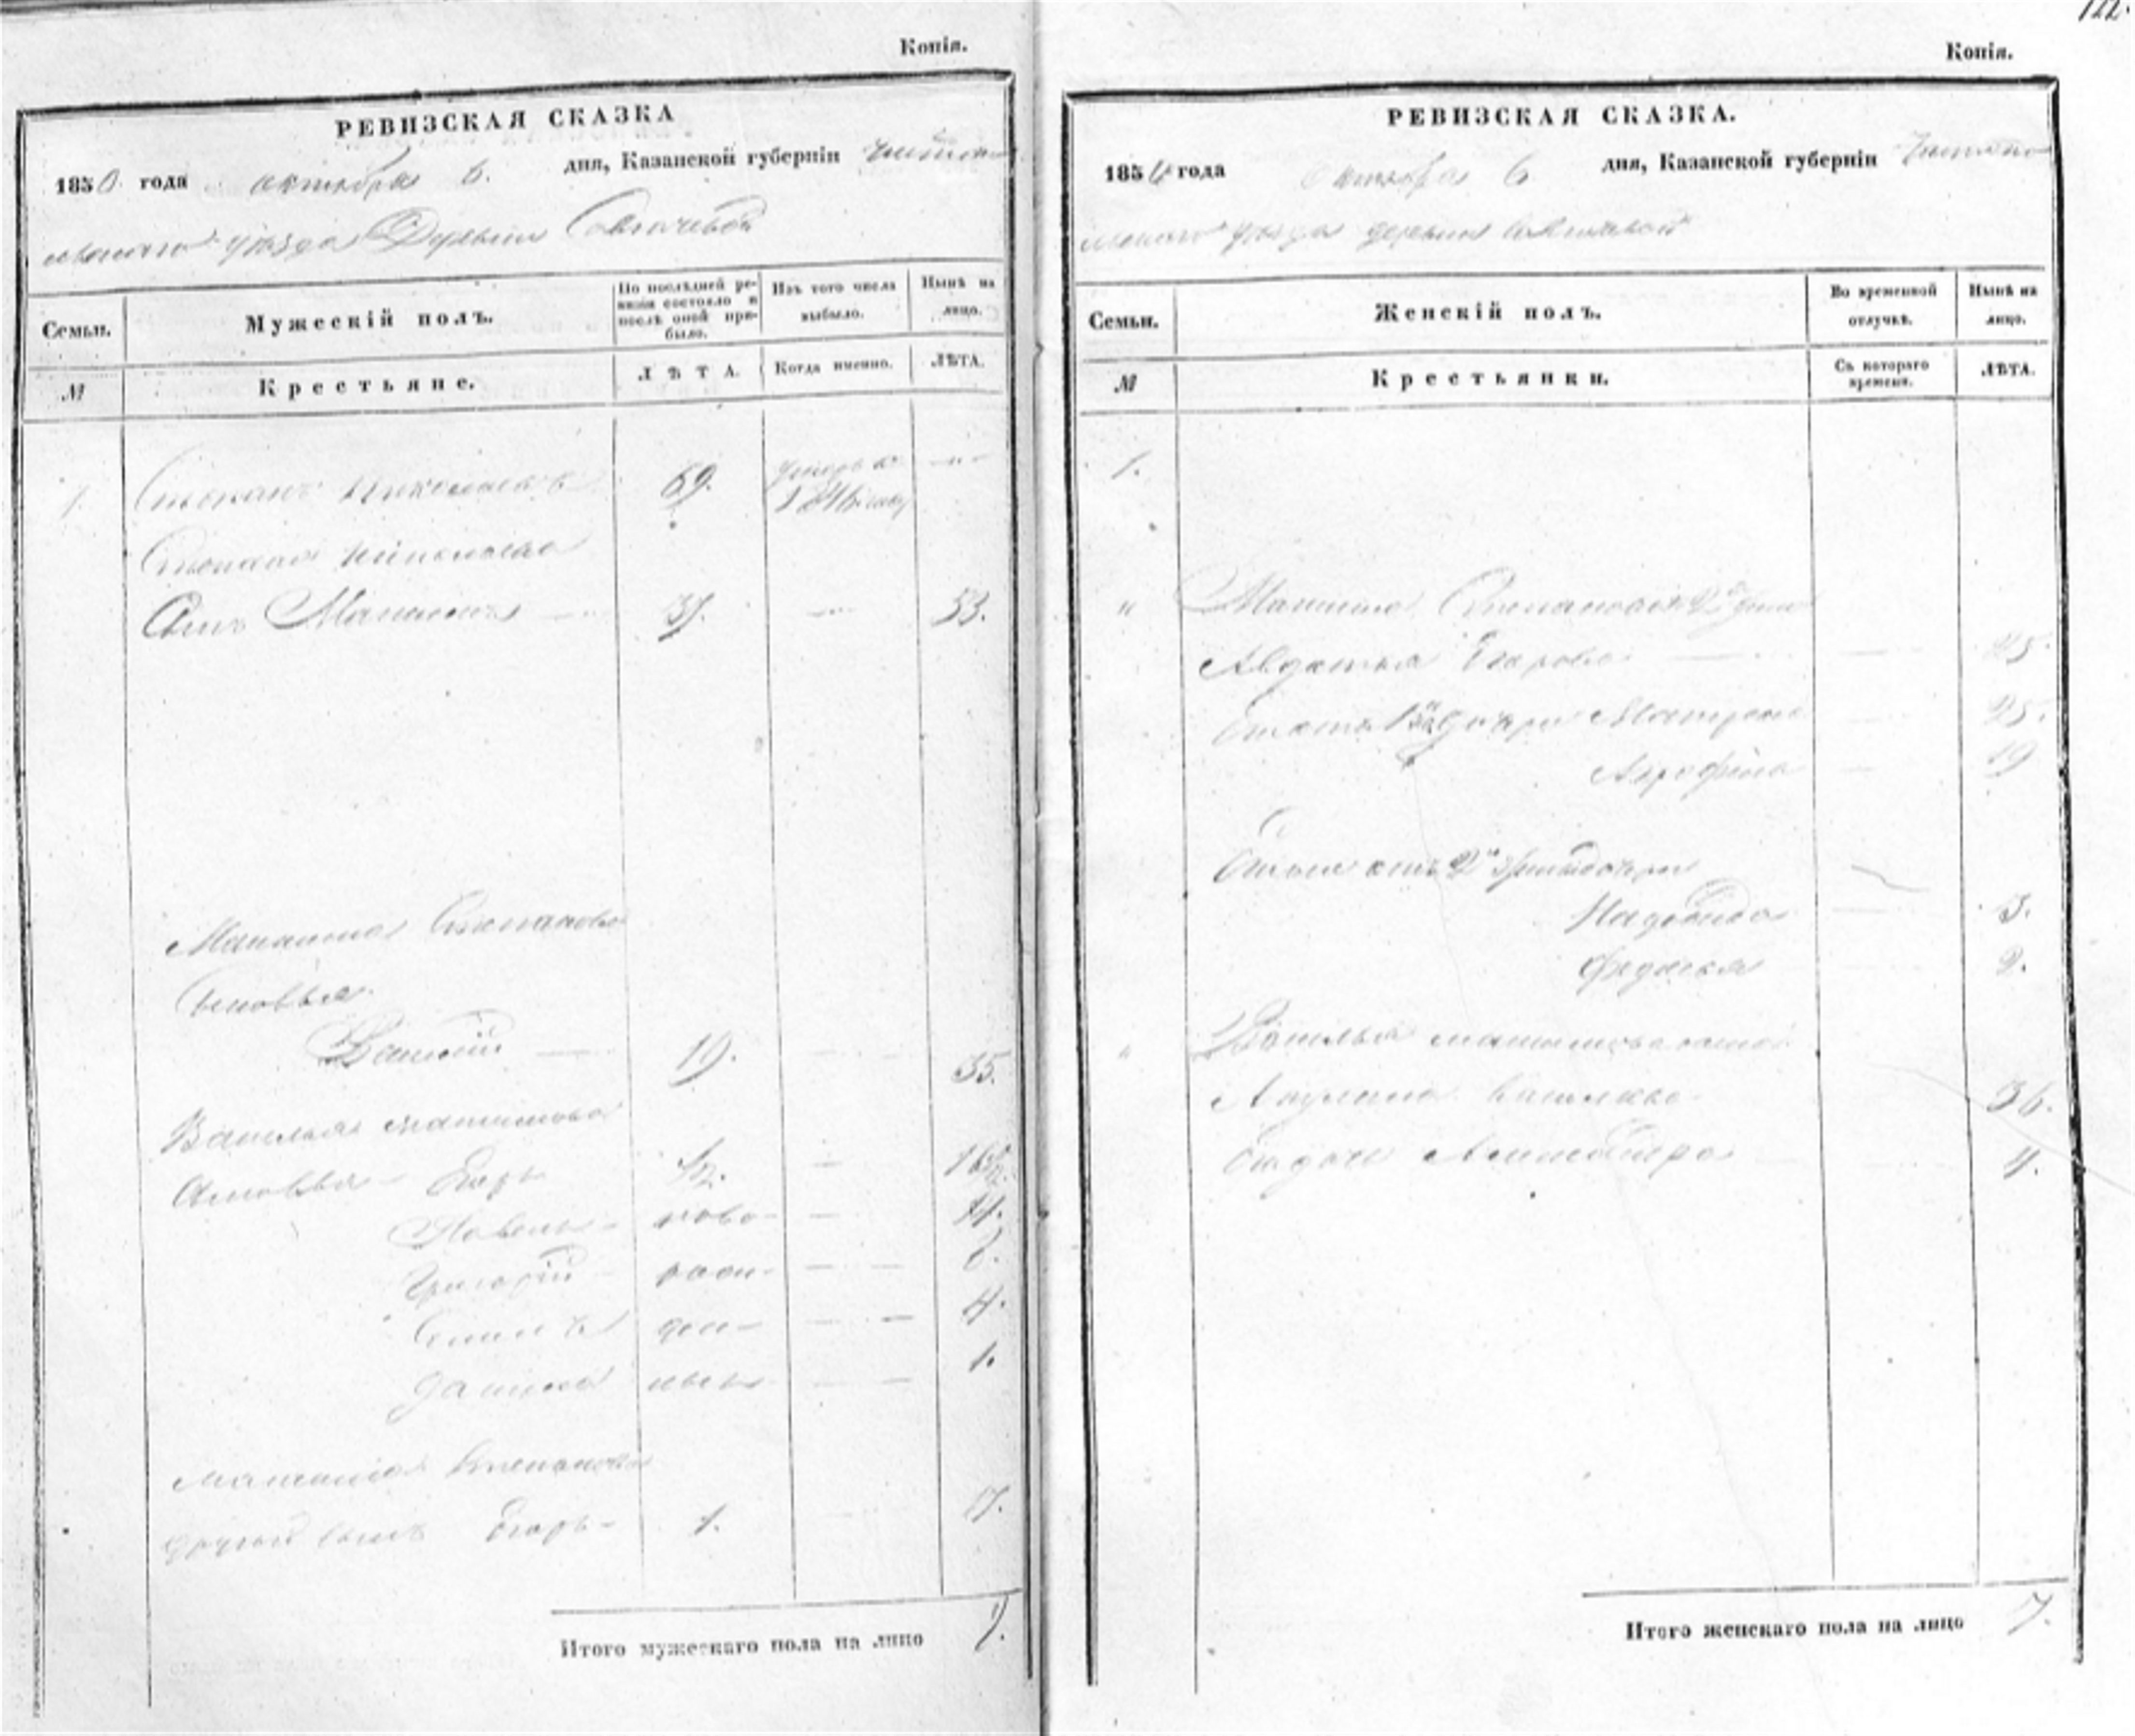 Копія.
РЕВИЗСКАЯ СКАЗКА
1850 года октября 6. дня, Казанской губерніи Чистопо
льскаго уѣзда Деревни
Семьи.
Мужескій полъ.
По послѣдней ре-
визіи состояло и
послѣ оной при-
было.
Изъ того числа
выбыло.
Нынѣ на
лицо.
№
Крестьяне.
ЛѢТА.
Когда именно.
ЛѢТА.
1. Степанъ Николаевъ 69. умеръ въ
1846 году
Степана Николаева
Сынъ 37. 53.
Степанова
Сыновья
Василій 19. 35.
Василья
Сыновья Егоръ 1/2. 16 1/2.
Павелъ ново- 14.
Григорій рож- 8.
Семенъ ден- 4.
Данила ные 1.
Степанова
другой сынъ Егоръ 1. 17.
Итого мужескаго пола на лицо 9.
122.
Копія.
РЕВИЗСКАЯ СКАЗКА.
185 года октября 6 дня, Казанской губерніи Чистопо
льскаго уѣзда деревни
Семьи.
Женскій полъ.
Во временной
отлучкѣ.
Нынѣ на
лицо.
№
Крестьянки.
Съ котораго
времени.
ЛѢТА.
1.
Степанова 2я жена
Авдотья Егорова 45.
дочери Матрена 25.
Агрофена 19
2й жены дочери
Надежда 3.
Федосья 2.
Василья жена
Акулина Васильева 36.
Ея дочь 4.
Итого женскаго пола на лицо 7.